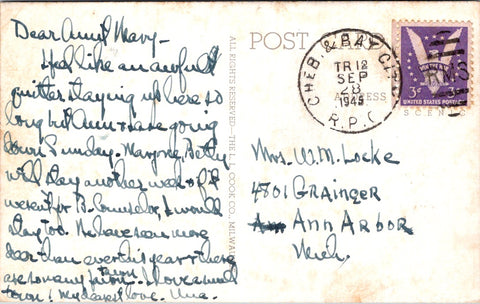 Dear Aunt Mary-
I feel like an awful
quitter staying up here so
long but Ann & are going
down Sunday. Marjorie, Betty
will stay another week & if
weren't for B. Counselor, I would
stay too. We have seen more
deer than ever this year & there
are so many I love a small
town! My dearest love.
ALL RIGHTS RESERVED—THE L.L. COOK CO., MILWAU
POST CARD
CHEB. & BAY CITY
TR 12
SEP
28
1945
R.P.O.
RMS
3¢
UNITED STATES POSTAGE
Mrs. W.M. Locke
4701 Grainger
Ann Arbor
Mich.